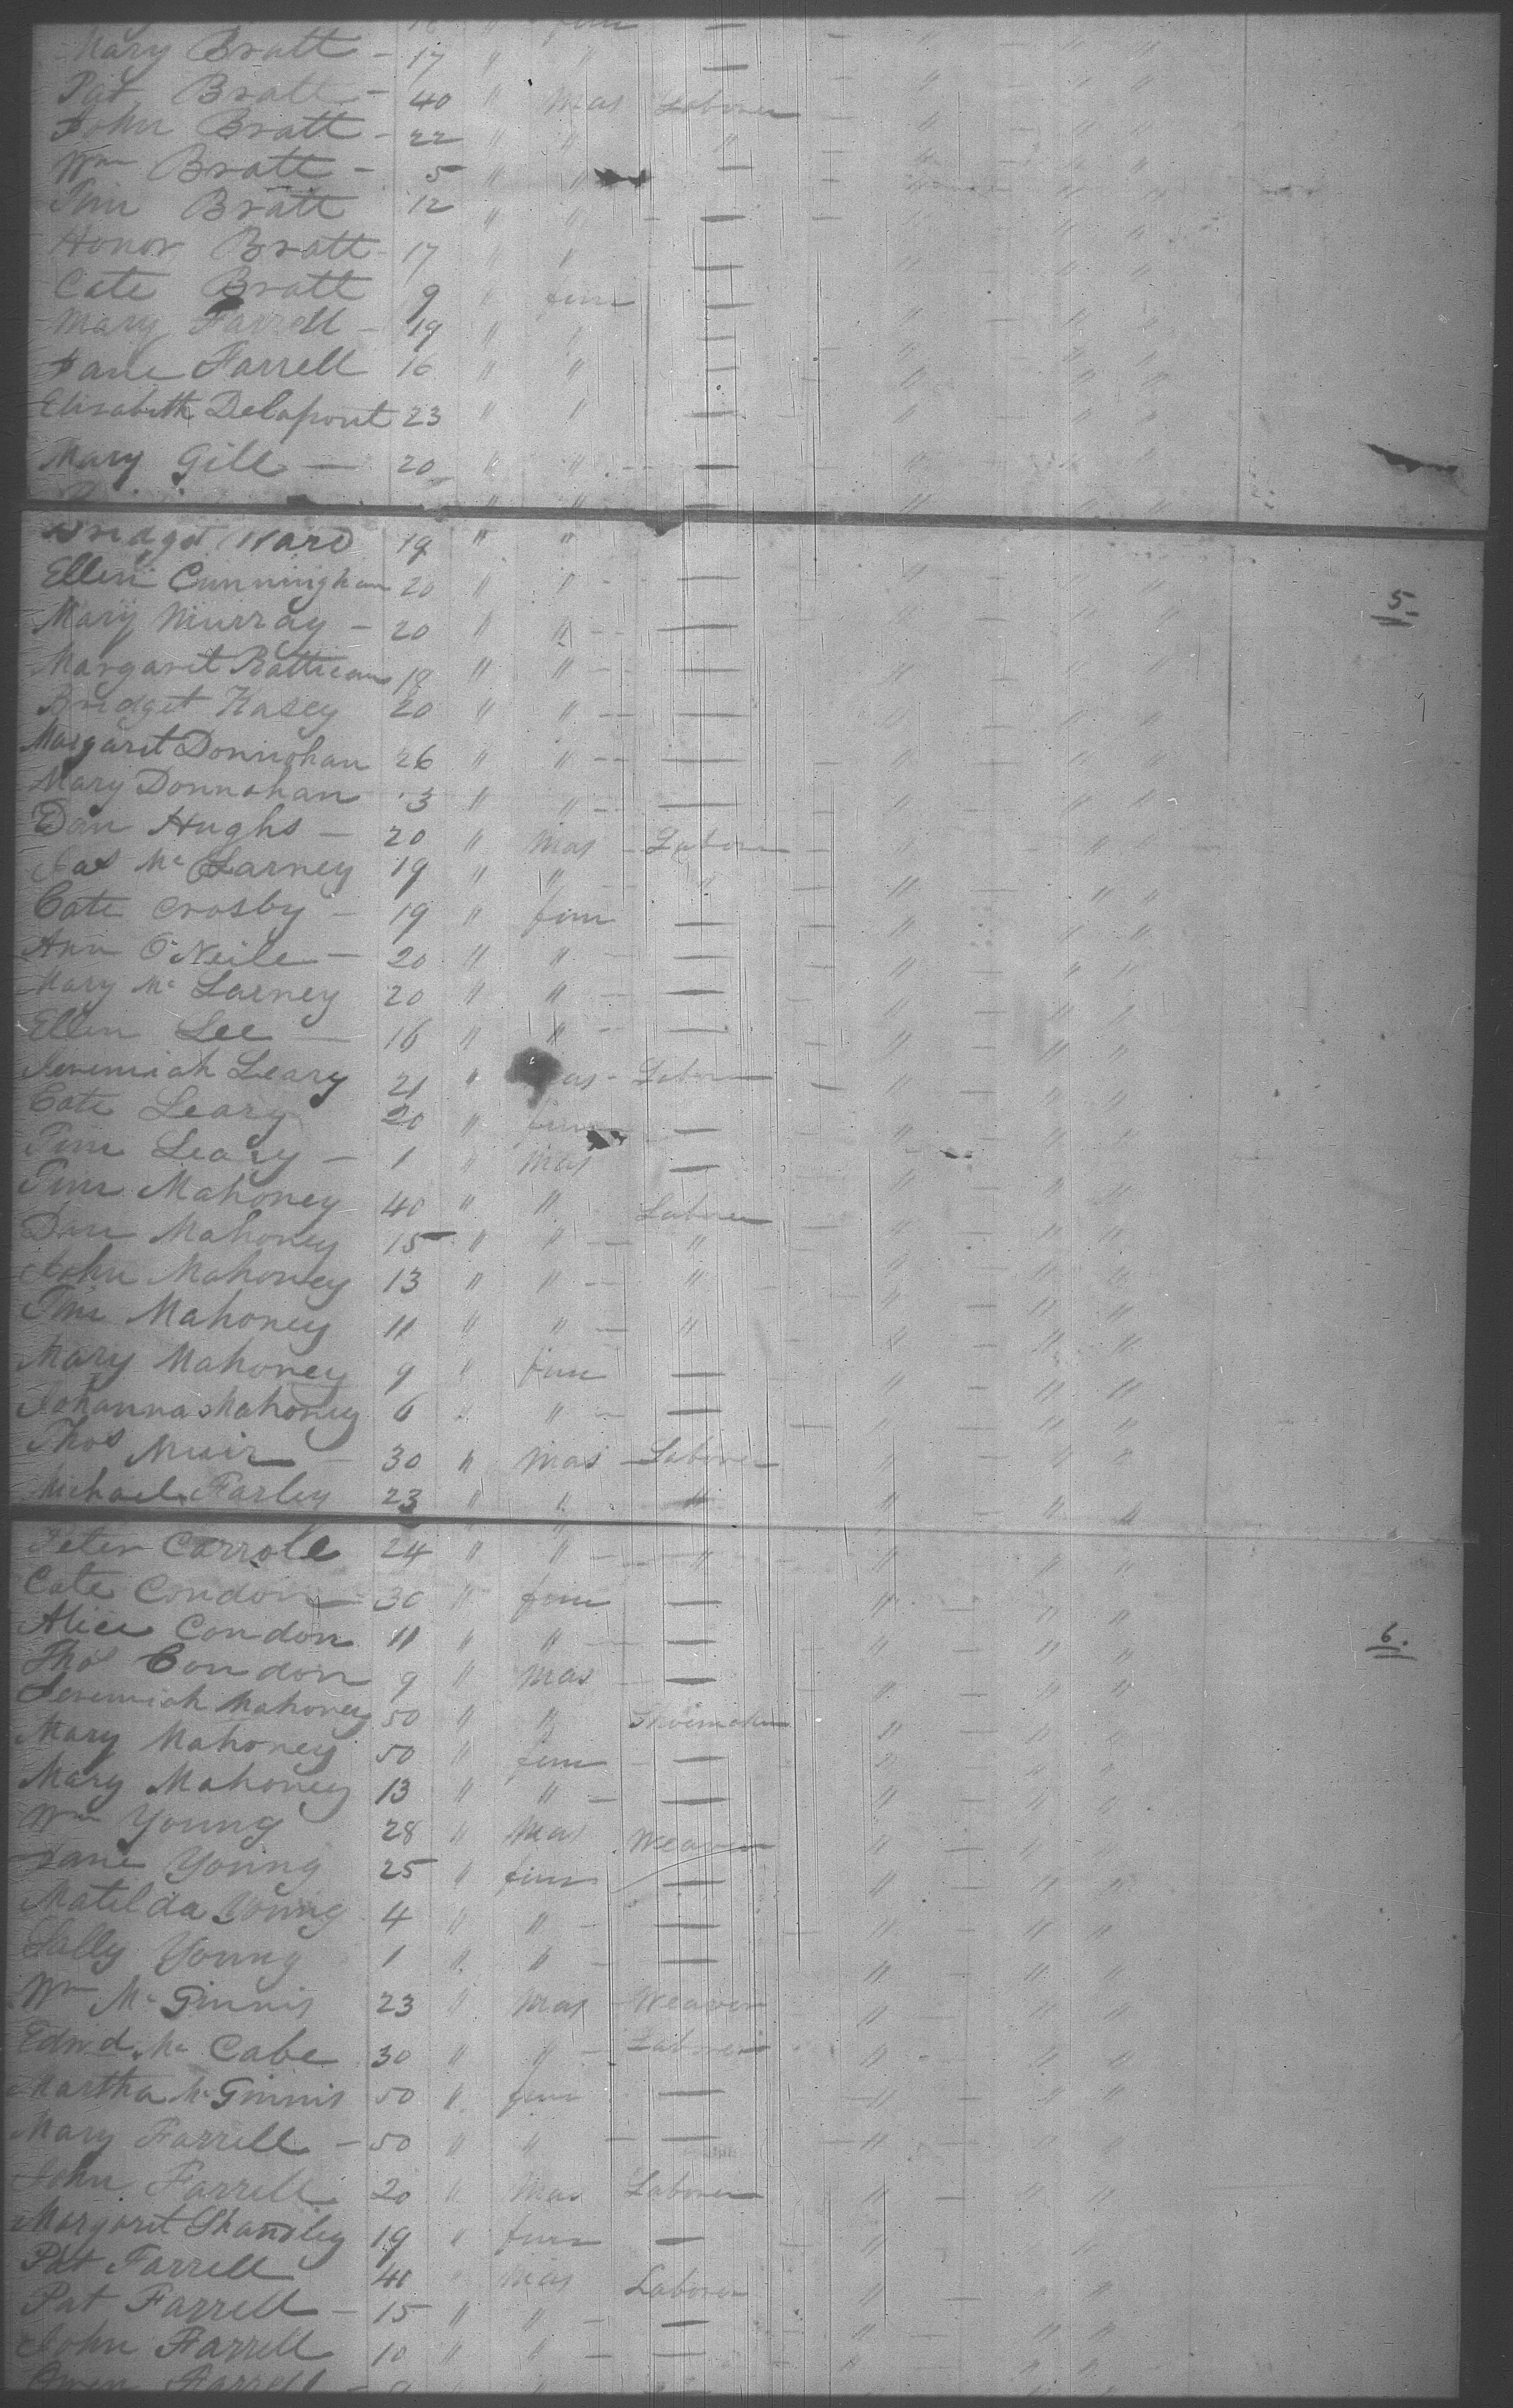 18 " fem —
Mary Bratt - 17 " " — - " - " "
Pat Bratt - 40 " Mas Laborer - " - " "
John Bratt - 22 " " " - " - " "
Wm Bratt - 5 " " — - " - " "
Tim Bratt 12 " " - — - " - " "
Honor Bratt - 17 " " — " - " "
Cate Bratt 9 " fem — " - " "
Mary Farrell - 19 " " — " - " "
Jane Farrell 16 " " — - " - " "
Elisabeth Delapont 23 " " — - " - " "
Mary Gill — 20 " " - — " - " "
Bridget Ward 19 " "
Ellen Cunningham 20 " " - — " - " "
5
Mary Murray - 20 " " - — " - " "
Margaret 18 " " - — " - " "
Bridget Kasey 20 " " - — " " "
Margaret Donnohan 26 " " - — - " - " "
Mary Donnohan 3 " " - — " - " "
Dan Hughs - 20 " Mas - Labor - " - " "
Jas Mc Larney 19 " " - " - " - " "
Cate Crosby - 19 " fem — - " - " "
Ann O'Neile - 20 " " - — - " - " "
Mary Mc Larney 20 " " - — - " - " "
Ellen Lee — 16 " " - — " - " "
Jeremiah Leary 21 " Mas - Labor - " - " "
Cate Leary 20 " fem — " - " "
Tim Leary - 1 " Mas — " - " "
Tim Mahoney 40 " " Laborer - " - " "
Dan Mahoney 15 " " - " " - " "
John Mahoney 13 " " - " " - " "
Tim Mahoney 11 " " - " - " - " "
Mary Mahoney 9 " fem — " - " "
Johanna Mahoney 6 " " - — - " - " "
Thos Muir - 30 " Mas - Laborer " - " "
Michael Farley 23 " " " " - " "
Peter Carrole 24 " " - " " " "
Cate Condon - 30 " fem — " - " "
Alice Condon 11 " " - — " - " "
6.
Thos Condon 9 " Mas - — " - " "
Jeremiah Mahoney 50 " " Shoemaker " - " "
Mary Mahoney 50 " fem - — " - " "
Mary Mahoney 13 " " - — " - " "
Wm Young 28 " Mas Weaver " - " "
Jane Young 25 " fem — " - " "
Matilda Young 4 " " - — - " - " "
Sally Young 1 " " - — " - " "
Wm Mc Ginnis 23 " Mas - Weaver - " - " "
Edwd Mc Cabe 30 " " - Laborer " - " "
Martha Mc Ginnis 50 " fem — - " - " "
Mary Farrell - 50 " " - — - " - " "
John Farrell 20 " Mas Laborer " - " "
Margaret Shandley 19 " fem — - " "  "
Pat Farrell 41 " Mas Laborer " - " "
Pat Farrell - 15 " " - — " - " "
John Farrell 10 " " - — " - " "
Owen Farrell -